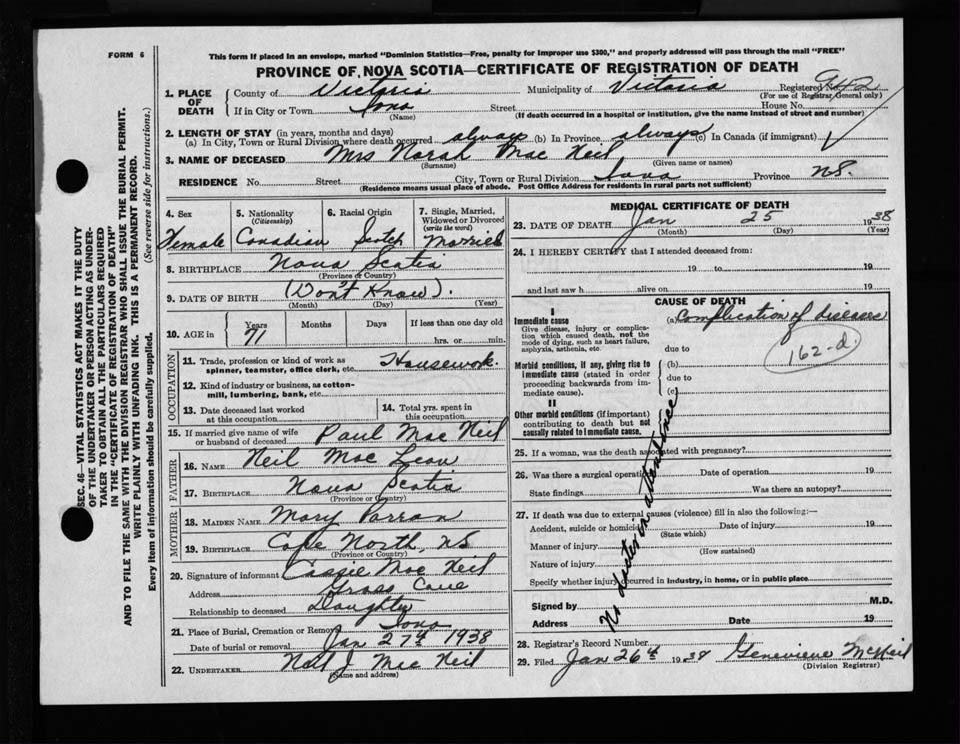 FORM 6
This form if placed in an envelope, marked "Dominion Statistics—Free, penalty for improper use $300," and properly addressed will pass through the mail "FREE"
PROVINCE OF NOVA SCOTIA—CERTIFICATE OF REGISTRATION OF DEATH
1. PLACE OF DEATH
County of Victoria Municipality of Victoria Registered No. 942
(For use of Registrar General only)
If in City or Town Iona Street House No.
(Name) (If death occurred in a hospital or institution, give the name instead of street and number)
2. LENGTH OF STAY (in years, months and days)
(a) In City, Town or Rural Division where death occurred always (b) In Province always (c) In Canada (if immigrant)
3. NAME OF DECEASED Mrs Norah Mac Neil
(Surname) (Given name or names)
RESIDENCE No. Street City, Town or Rural Division Iona Province N.S.
(Residence means usual place of abode. Post Office Address for residents in rural parts not sufficient)
4. Sex
Female
5. Nationality
(Citizenship)
Canadian
6. Racial Origin
Scotch
7. Single, Married, Widowed or Divorced
(write the word)
Married
8. BIRTHPLACE Nova Scotia
(Province or Country)
9. DATE OF BIRTH (Don't Know).
(Month) (Day) (Year)
10. AGE in
Years Months Days If less than one day old
71 hrs. or min.
OCCUPATION
11. Trade, profession or kind of work as spinner, teamster, office clerk, etc. Housework.
12. Kind of industry or business, as cotton-mill, lumbering, bank, etc.
13. Date deceased last worked at this occupation
14. Total yrs. spent in this occupation
15. If married give name of wife or husband of deceased Paul Mac Neil
FATHER
16. NAME Neil Mac Lean
17. BIRTHPLACE Nova Scotia
(Province or Country)
MOTHER
18. MAIDEN NAME Mary
19. BIRTHPLACE Cape North, N.S
(Province or Country)
20. Signature of informant Cassie Mac Neil
Address Grass Cove
Relationship to deceased Daughter
21. Place of Burial, Cremation or Removal Iona
Date of burial or removal Jan 27th 1938
22. UNDERTAKER Neil J Mac Neil
(Name and address)
MEDICAL CERTIFICATE OF DEATH
23. DATE OF DEATH Jan 25 1938
(Month) (Day) (Year)
24. I HEREBY CERTIFY that I attended deceased from:
19 to 19
and last saw h alive on 19
CAUSE OF DEATH
I
Immediate cause
Give disease, injury or complication which caused death, not the mode of dying, such as heart failure, asphyxia, asthenia, etc.
(a) Complication of diseases
162-d.
due to
Morbid conditions, if any, giving rise to immediate cause (stated in order proceeding backwards from immediate cause).
(b)
due to
(c)
II
Other morbid conditions (if important) contributing to death but not causally related to immediate cause.
25. If a woman, was the death associated with pregnancy?
26. Was there a surgical operation Date of operation 19
State findings Was there an autopsy?
27. If death was due to external causes (violence) fill in also the following:—
Accident, suicide or homicide Date of injury 19
(State which)
Manner of injury
(How sustained)
Nature of injury
Specify whether injury occurred in industry, in home, or in public place
Signed by M.D.
Address Date 19
28. Registrar's Record Number
29. Filed Jan 26th 1938 Genevieve McNeil
(Division Registrar)
No doctor in attendance
SEC. 46—VITAL STATISTICS ACT MAKES IT THE DUTY
OF THE UNDERTAKER OR PERSON ACTING AS UNDER-
TAKER TO OBTAIN ALL THE PARTICULARS REQUIRED
IN THE "CERTIFICATE OF REGISTRATION OF DEATH"
AND TO FILE THE SAME WITH THE DIVISION REGISTRAR WHO SHALL ISSUE THE BURIAL PERMIT.
WRITE PLAINLY WITH UNFADING INK. THIS IS A PERMANENT RECORD.
Every item of information should be carefully supplied. (See reverse side for instructions.)